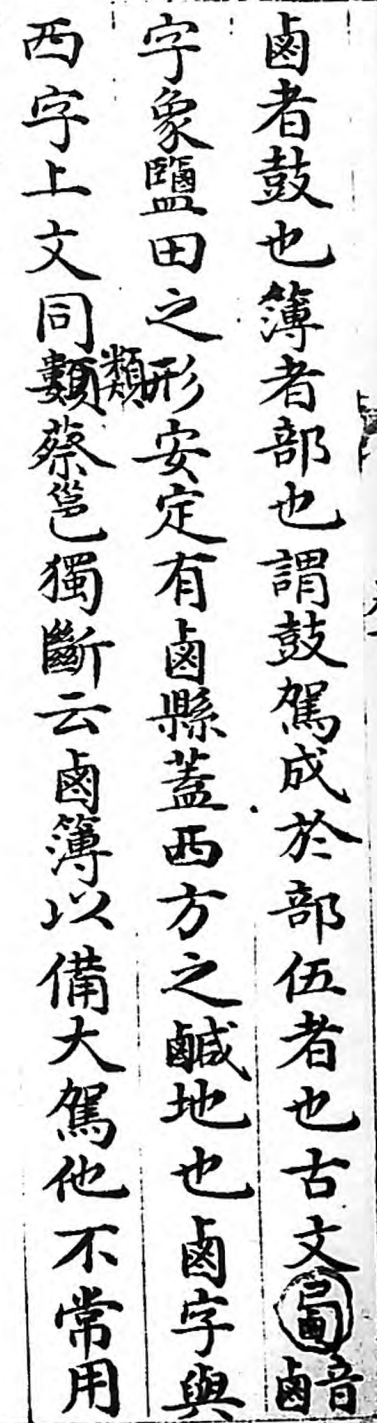 鹵者鼓也簿者部也謂鼓駕成於部伍者也古文音鹵
字象鹽田之形安定有鹵縣蓋西方之鹹地也鹵字與
西字上文同類類蔡邕獨斷云鹵簿以備大駕他不常用